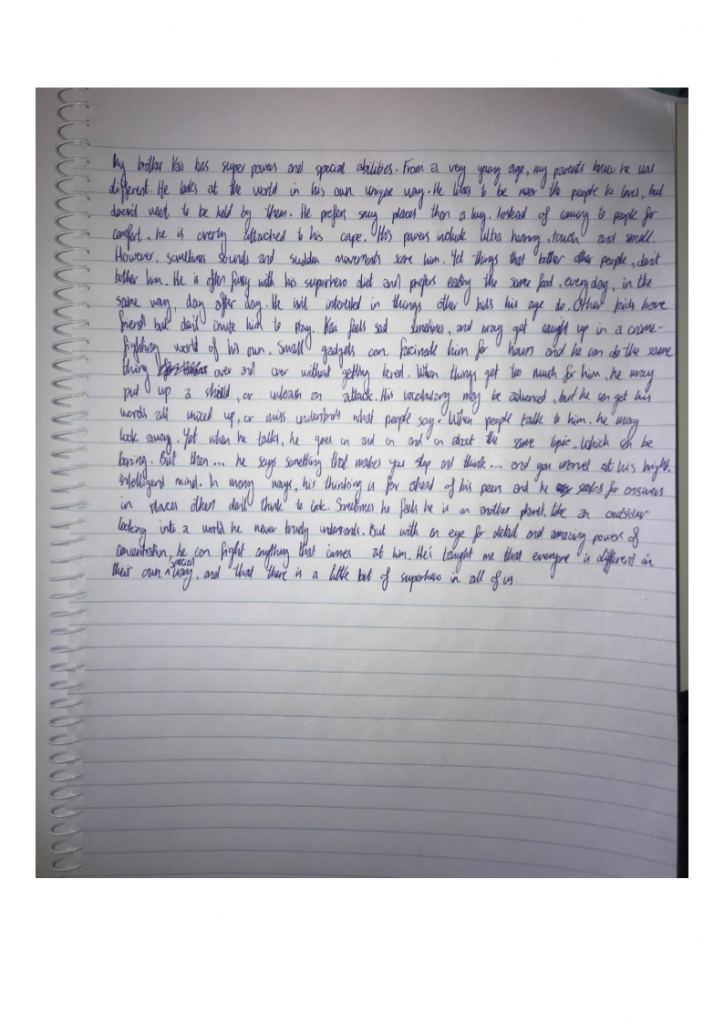 My brother Kai has super powers and special abilities. From a very young age, my parents knew he was
different. He looks at the world in his own unique way. He likes to be near the people he loves, but
doesn't want to be held by them. He prefers snug places than a hug. Instead of coming to people for
comfort, he is overly attached to his cape. His powers include ultra hearing, touch and smell.
However, sometimes sounds and sudden movements scare him. Yet things that bother other people, don't
bother him. He is often fussy with his superhero diet and prefers eating the same food, everyday, in the
same way, day after day. He isn't interested in things other kids his age do. Other kids have
friends but don't invite him to play. Kai feels sad sometimes, and may get caught up in a crime-
fighting world of his own. Small gadgets can fascinate him for hours and he can do the same
thing over and over without getting bored. When things get too much for him, he may
put up a shield, or unleash an attack. His vocabulary may be advanced, but he can get his
words all mixed up, or miss understands what people say. When people talk to him, he may
look away. Yet when he talks, he goes on and on and on about the same topic. Which can be
boring. But then... he says something that makes you stop and think... and you marvel at his bright,
intelligent mind. In many ways, his thinking is far ahead of his peers and he seeks for answers
in places others don't think to look. Sometimes he feels he is on another planet, like an outsider
looking into a world he never truly understands. But with an eye for detail and amazing powers of
concentration, he can fight anything that comes at him. He's taught me that everyone is different in
their own special way, and that there is a little bit of superhero in all of us